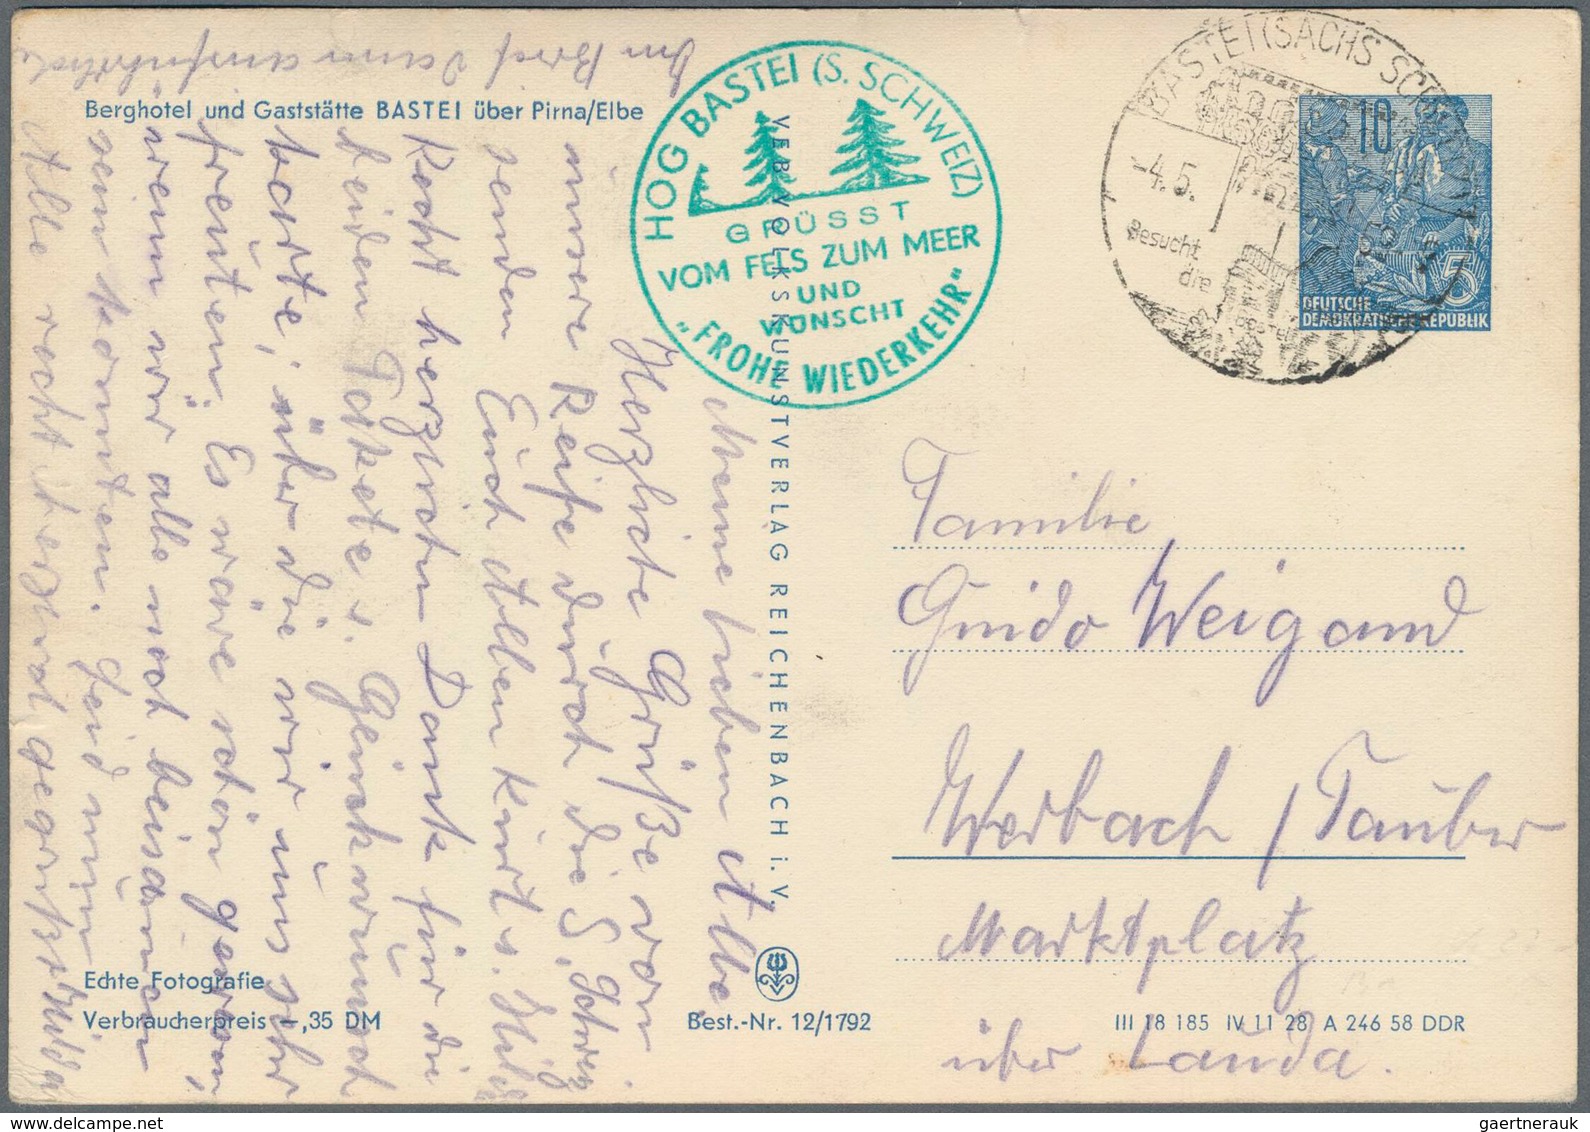 Berghotel und Gaststätte BASTEI über Pirna/Elbe
HOG BASTEI (S. SCHWEIZ)
GRÜSST
VOM FELS ZUM MEER
UND
WÜNSCHT
"FROHE WIEDERKEHR"
BASTEI (SÄCHS SCHWEIZ)
-4.5.
Besucht
die
10
5
DEUTSCHE
DEMOKRATISCHE REPUBLIK
VEB VOLKSKUNSTVERLAG REICHENBACH i. V.
Meine lieben
Herzliche Grüße von
unsere Reise durch die S.
senden Euch Allen Kurt u. Hilda
Recht herzlichen Dank für die
beiden Pakete u. Glückwunsch
karte, über die wir uns sehr
freuten. Es wäre schön gewesen,
wenn wir alle noch beisammen
sein könnten. Seid nun
Alle recht herzlich gegrüßt Hilda
Im Brief dann ausführlicher
Familie
Guido Weigand
Werbach / Tauber
Marktplatz
über Lauda.
Echte Fotografie
Verbraucherpreis -,35 DM
Best.-Nr. 12/1792
III 18 185 IV 11 28 A 246 58 DDR
gaertnerauk@